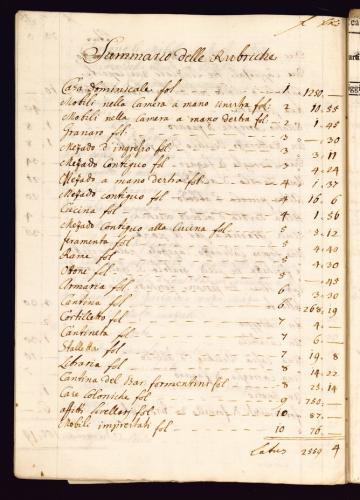 Summario delle Rubriche
Casa Dominicale fol - 1 - 1250 -
Mobili nella Camera a mano sinistra fol - 2 - 10.55
Mobili nella Camera a mano destra fol - 2 - 1.45
Granaro fol - 3 - .30
Mezado d'ingresso fol - 3 - 3.11
Mezado Contiguo fol - 3 - 4.24
Mezado a mano destra fol - 4 - 1.37
Mezado contiguo fol - 4 - 16.6
Cucina fol - 4 - 1.56
Mezado Contiguo alla Cucina fol - 5 - 3.12
feramenta fol - 5 - 4.40
Rame fol - 5 - 4.30
Otone fol - 5 - .45
Armaria fol - 6 - 3.30
Cantina fol - 6 - 268.19
Cortiletto fol - 7 - 4. -
Cantineta fol - 7 - 6. -
Stalletta fol - 7 - 19.8
Libraria fol - 8 - 14.22
Cantina del Bar. formentini fol - 8 - 23.14
Case Coloniche fol - 9 - 750. -
affitti livellari fol - 10 - 87. -
Mobili imprestati fol - 10 - 76. -
Latus 2559 4